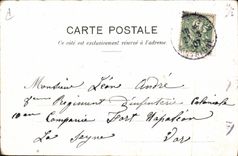 CARTE POSTALE
Ce côté est exclusivement réservé à l'adresse.
Monsieur Léon André
Regiment d'infanterie Coloniale
10 Compagnie Fort Napoléon
La Seyne Var